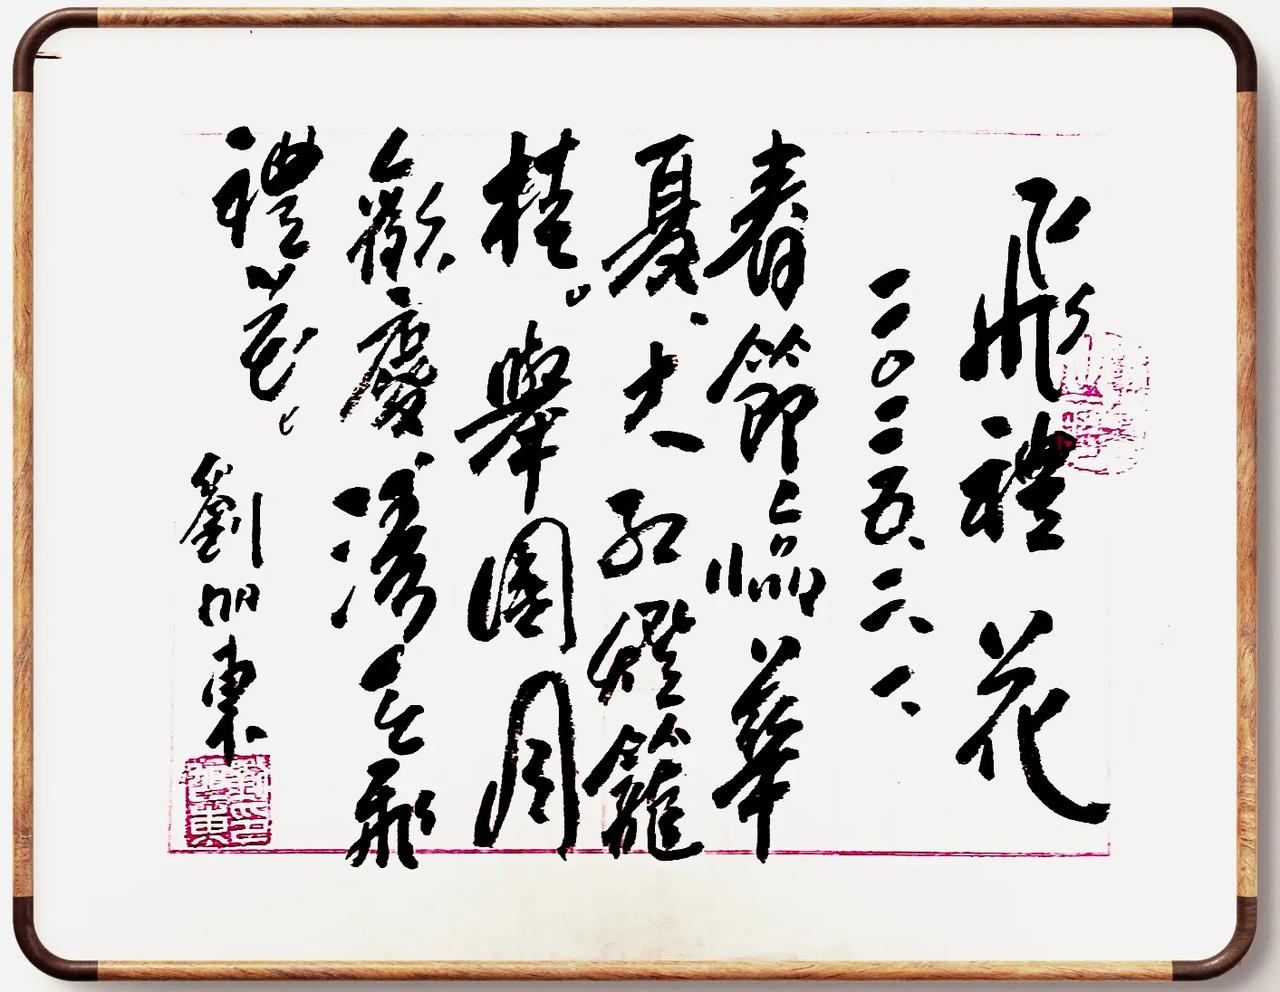 飛禮花
二〇二五、六、一、
春節臨華
夏、大紅燈籠
掛。舉國同
歡慶、濤天飛
禮花。
劉旭東